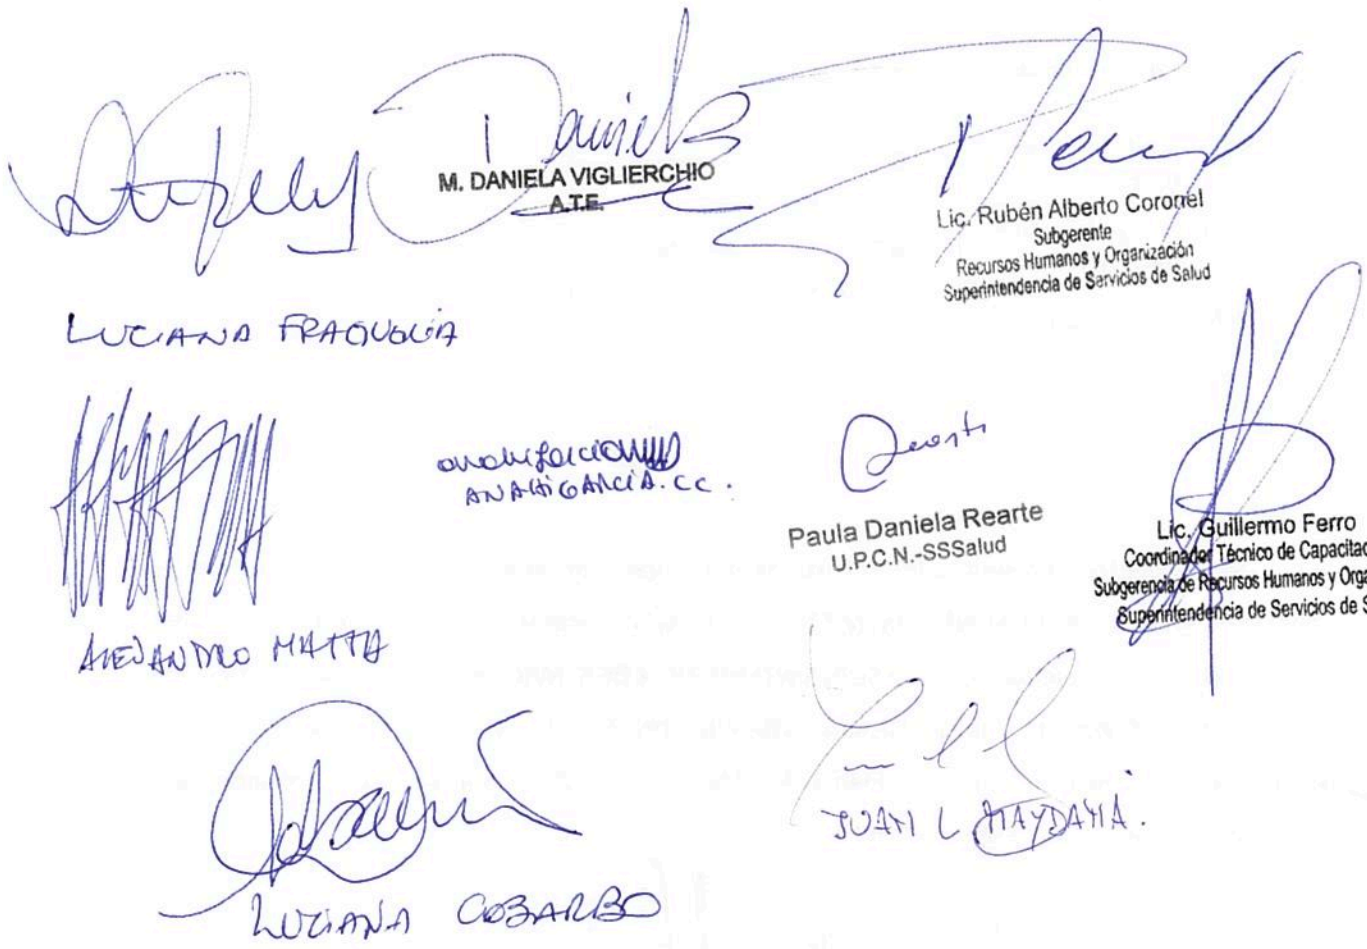 Daniela
M. DANIELA VIGLIERCHIO
A.T.E.
Lic. Rubén Alberto Coronel
Subgerente
Recursos Humanos y Organización
Superintendencia de Servicios de Salud
LUCIANA FRAGUGLIA
ANAHI GARCIA. CC.
Paula Daniela Rearte
U.P.C.N.-SSSalud
Lic. Guillermo Ferro
Coordinador Técnico de Capacitac
Subgerencia de Recursos Humanos y Orga
Superintendencia de Servicios de S
ALEJANDRO MATTA
JUAN L MAYDANA.
LUCIANA COBARBO